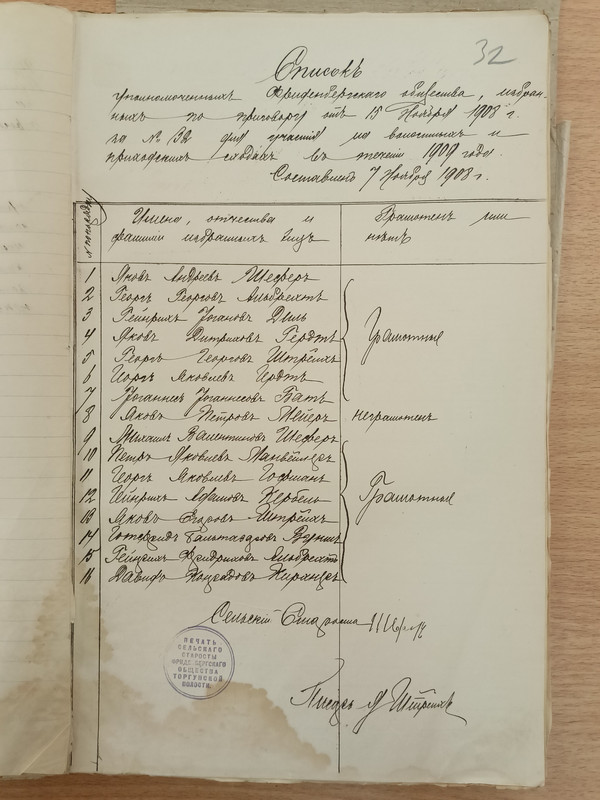 32
Списокъ
уполномоченныхъ Фриденбергскаго общества, избран-
ныхъ по приговору отъ 15 Ноября 1908 г.
за № 32 для участiя на волостныхъ и
приходскихъ сходахъ въ теченiи 1909 года.
Составленъ 7 Ноября 1908 г.
Имена, отчества и
фамилiи избранныхъ лицъ
Грамотенъ или
нѣтъ
1 Яковъ Андреевъ Шеферъ
2 Георгъ Георговъ Альбрехтъ
3 Гейнрихъ Iогановъ Диль
4 Яковъ Дитриховъ Гердтъ
5 Георгъ Георговъ Штрейхъ
6 Iоргъ Яковлевъ
7 Iоганнесъ Iоганнесовъ Батъ
Грамотные
8 Яковъ Петровъ Мейеръ неграмотенъ
9 Михаилъ Валентиновъ Шеферъ
10 Петръ Яковлевъ
11 Георгъ Яковлевъ Гофманъ
12 Гейнрихъ Адамовъ Кербель
13 Яковъ Егоровъ Штрейхъ
14
15 Гейнрихъ Фридриховъ Альбрехтъ
16 Давидъ Конрадовъ
Грамотные
Сельскiй Староста
ПЕЧАТЬ
СЕЛЬСКАГО
СТАРОСТЫ
ФРИДЕНБЕРГСКАГО
ОБЩЕСТВА
ТОРГУНСКОЙ
ВОЛОСТИ.
Писарь Я Штрейхъ